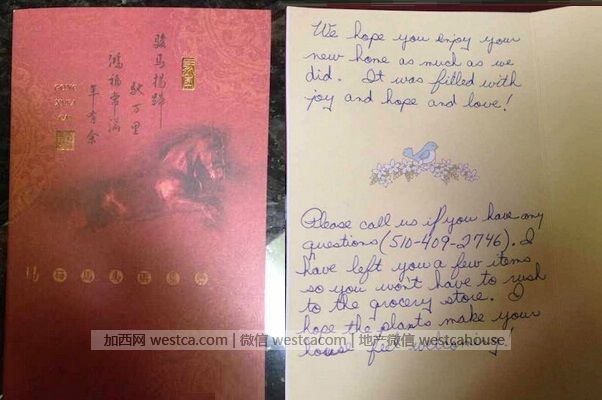 骏马扬蹄
驮万里
鸿福常满
年有余
We hope you enjoy your
new home as much as we
did. It was filled with
joy and hope and love!
Please call us if you have any
questions (510-409-2746). I
have left you a few items
so you won't have to rush
to the grocery store. I
hope the plants make your
house feel welcoming!
加西网 westca.com | 微信 westcacom | 地产微信 westcahouse